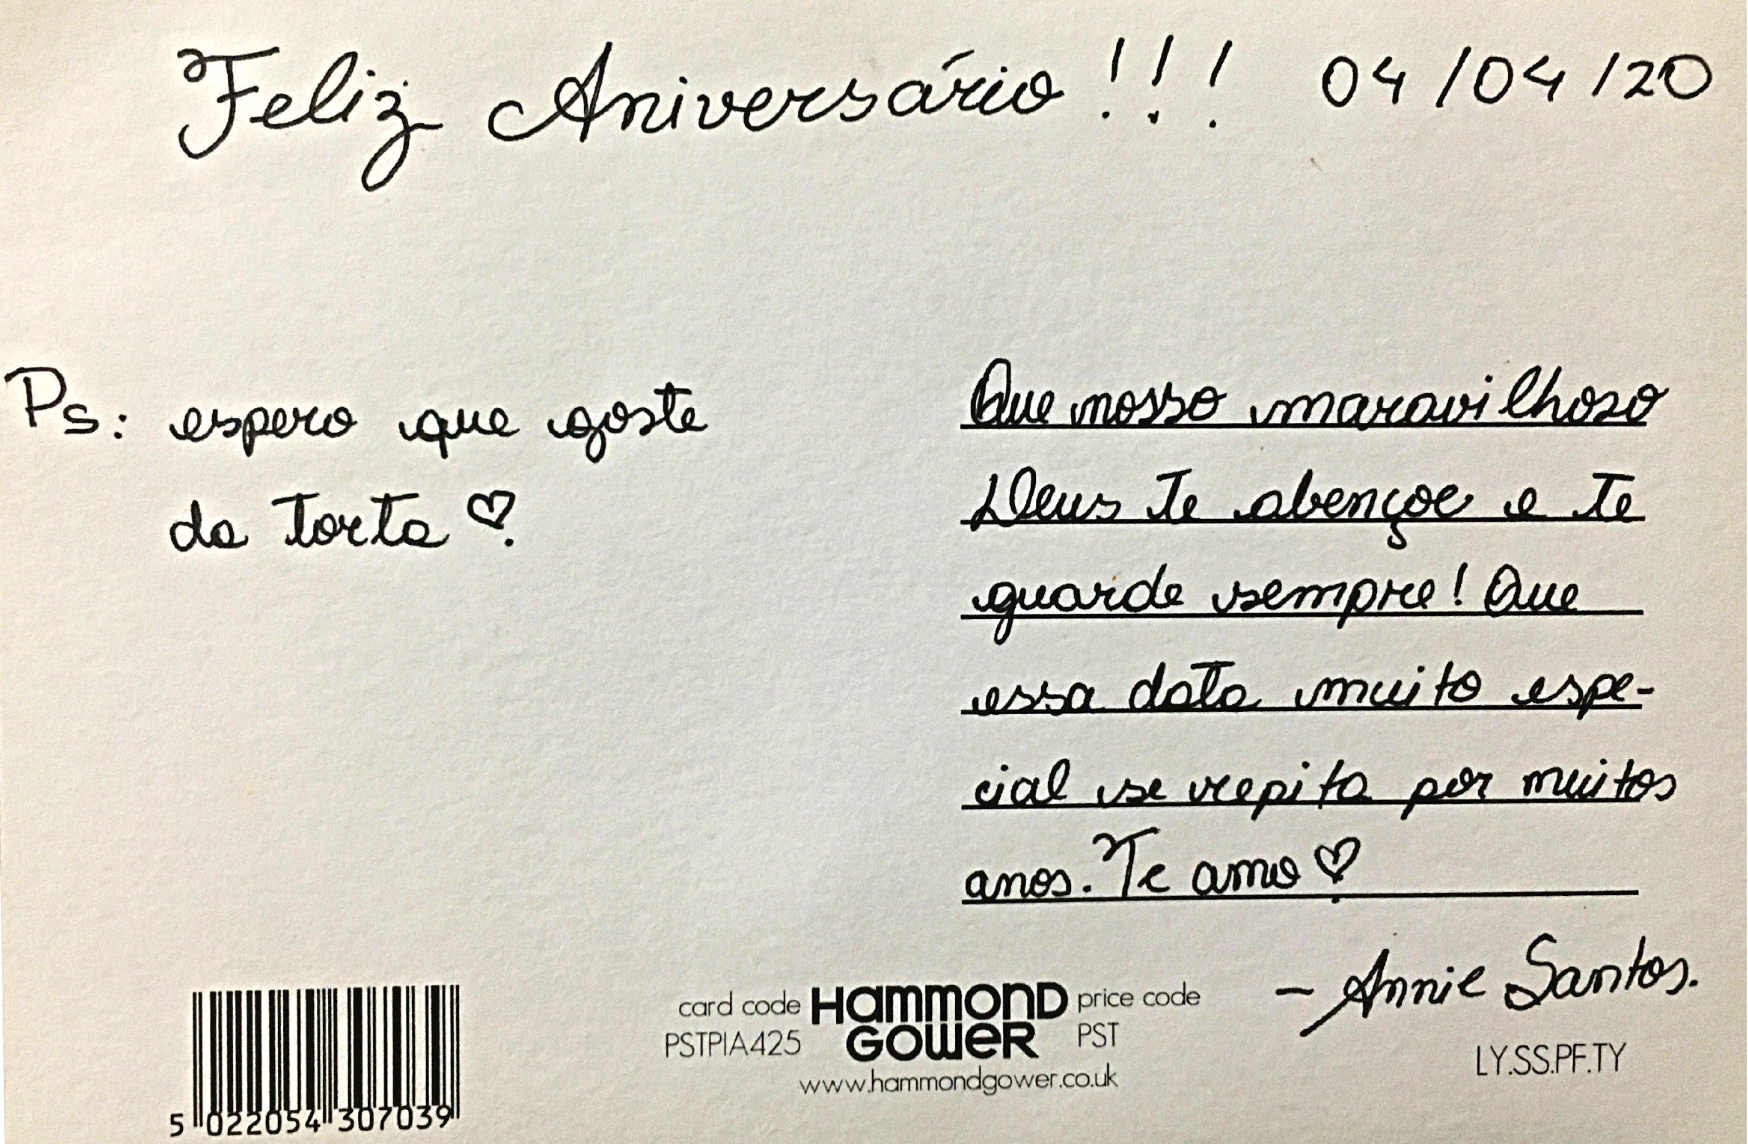 Feliz Aniversário!!! 04/04/20
Ps: espero que goste
da torta ♡
Que nosso maravilhoso
Deus te abençoe e te
guarde sempre! Que
essa data muito espe-
cial se repita por muitos
anos. Te amo ♡
- Annie Santos.
card code HAMMOND GOWER price code
PSTPIA425 PST
www.hammondgower.co.uk
LY.SS.PF.TY
5 022054 307039